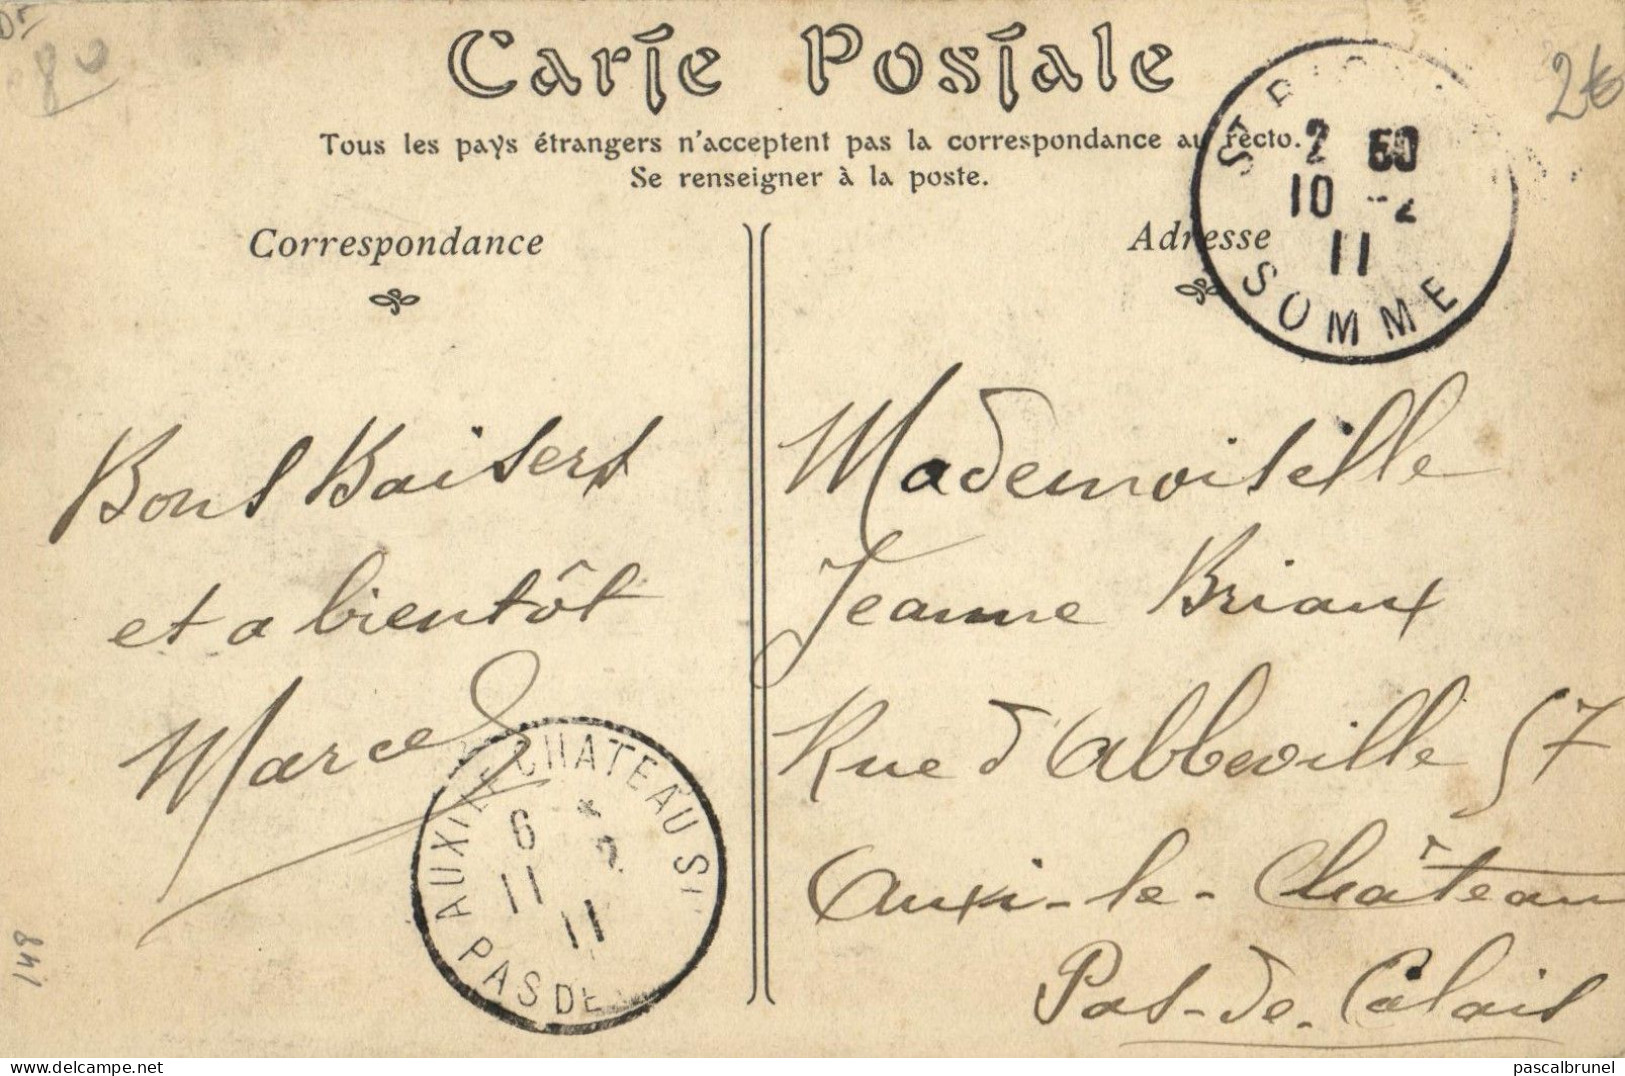 Carte Postale
Tous les pays étrangers n'acceptent pas la correspondance au recto.
Se renseigner à la poste.
Correspondance
Adresse
2 50
10 -2
11
SOMME
80
2€
Bons Baisers
et a bientôt
Marcel
Mademoiselle
Jeanne Briaux
Rue d'Abbeville 57
Auxi-le-Château
Pas-de-Calais
AUXI LE CHATEAU
6 * 2
11 11
PAS DE
148
delcampe.net
pascalbrunel